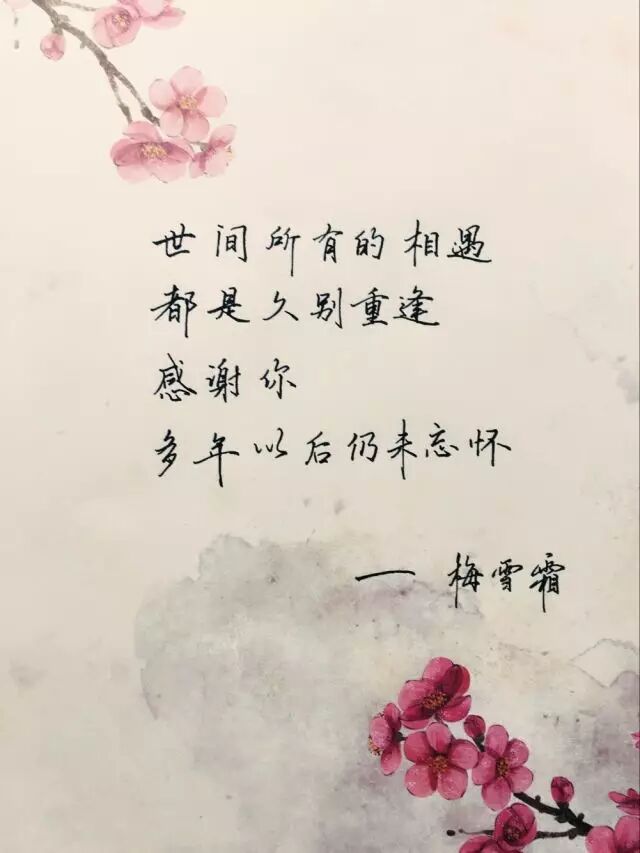 世间所有的相遇
都是久别重逢
感谢你
多年以后仍未忘怀
— 梅雪霜